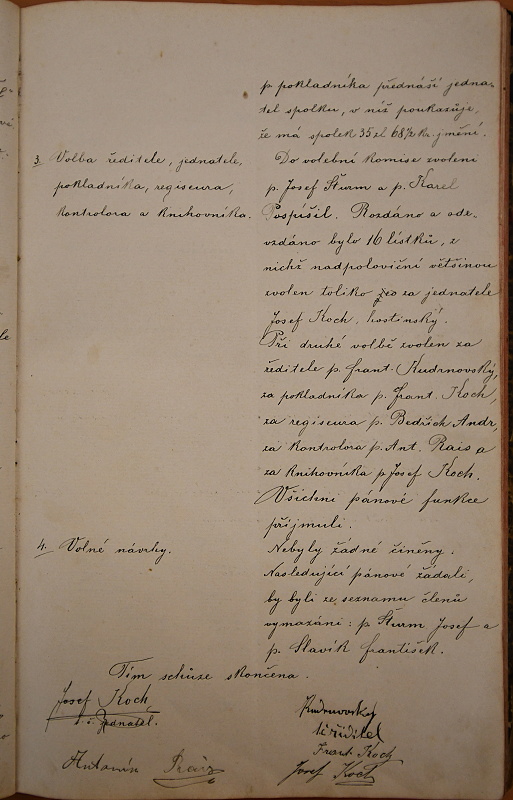 p pokladníka přednáší jedna-
tel spolku, v níž poukazuje,
že má spolek 35 zl 68½ kr. jmění.
3. Volba ředitele, jednatele,
pokladníka, regiseura,
kontrolora a knihovníka.
Do volební komise zvoleni
p. Josef Šturm a p. Karel
Pospíšil. Rozdáno a ode-
vzdáno bylo 16 lístků, z
nichž nadpoloviční většinou
zvolen toliko za jednatele
Josef Koch, hostinský.
Při druhé volbě zvolen za
ředitele p. Frant. Kudrnovský,
za pokladníka p. Frant. Koch,
za regiseura p. Bedřich Andr,
za kontrolora p. Ant. Rais a
za knihovníka p Josef Koch.
Všichni pánové funkce
přijmuli.
4. Volné návrhy.
Nebyly žádné činěny.
Následující pánové žádali,
by byli ze seznamu členů
vymazáni: p Šturm Josef a
p. Slavík František.
Tím schůze skončena.
Josef Koch,
t. č. jednatel.
Kudrnovský
t č ředitel
Frant Koch
Antonín Rais
Josef Koch